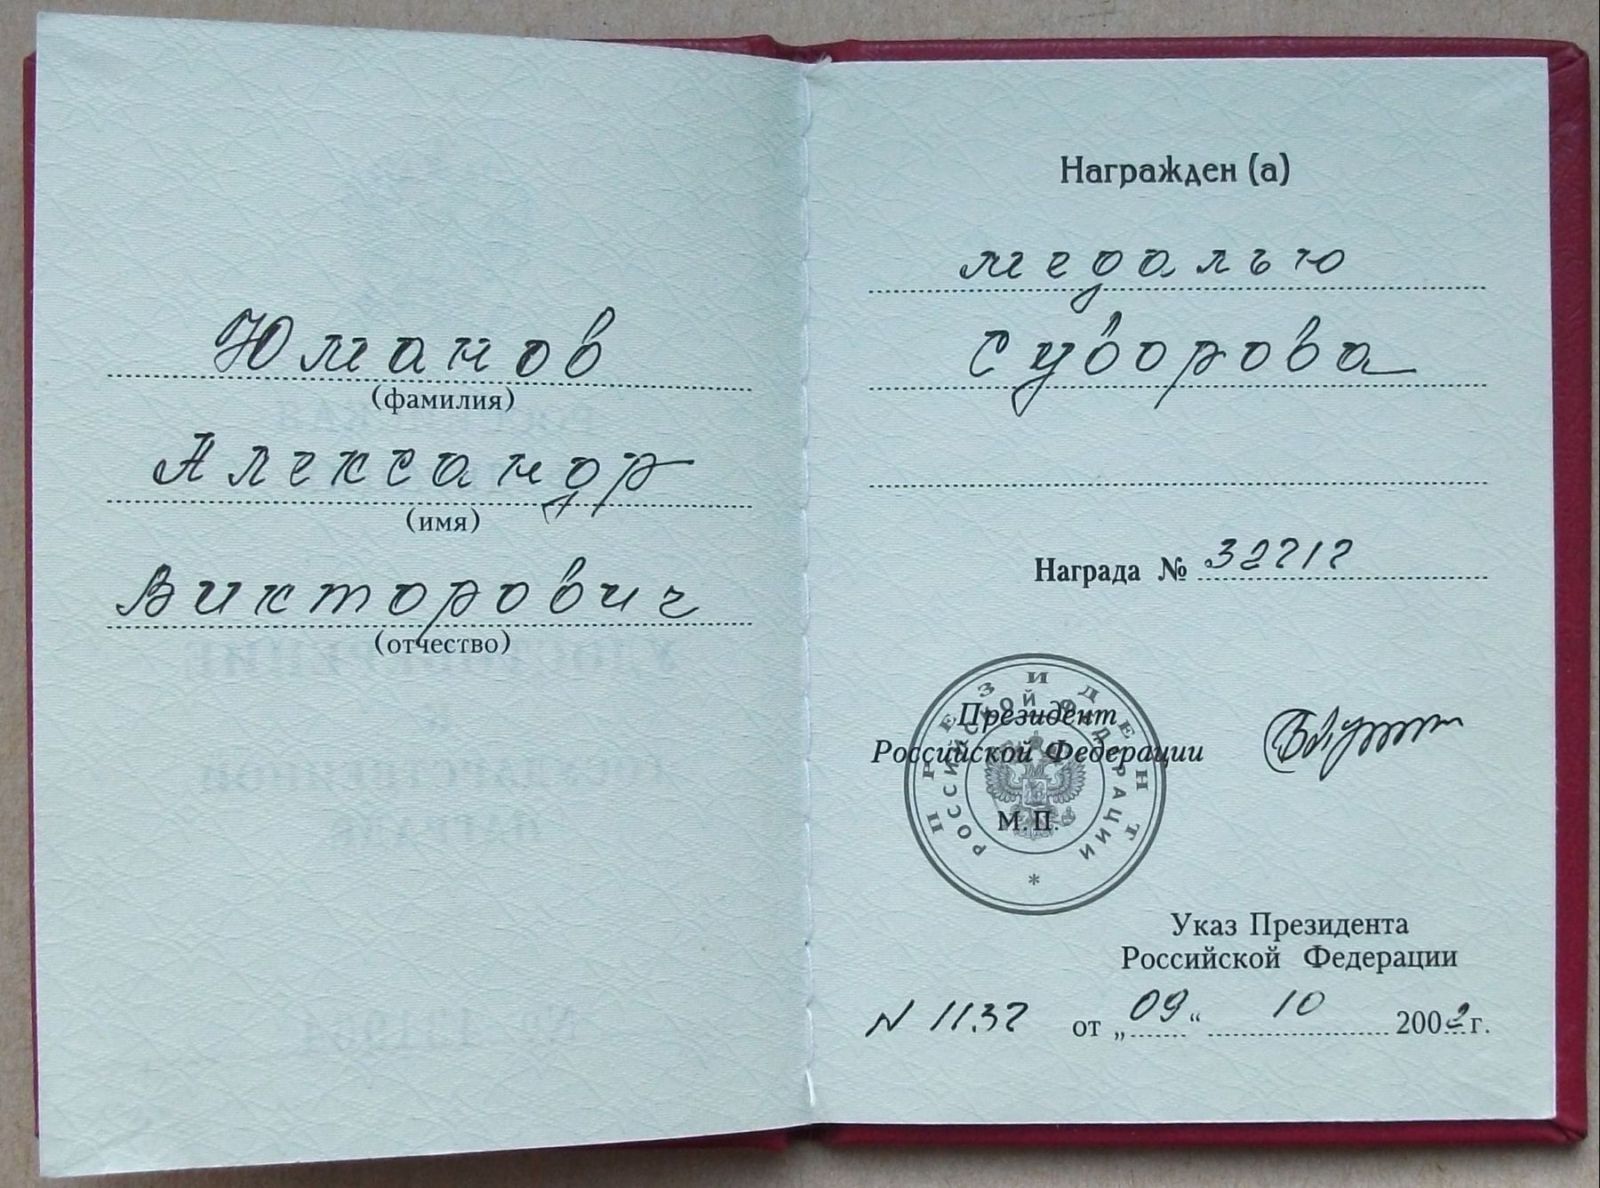 Юманов
(фамилия)
Александр
(имя)
Викторович
(отчество)
Награжден (а)
медалью
Суворова
Награда № 32212
ПРЕЗИДЕНТ
РОССИЙСКОЙ ФЕДЕРАЦИИ
*
Президент
Российской Федерации
М.П.
Указ Президента
Российской Федерации
N 1132 от „09“ 10 2002 г.